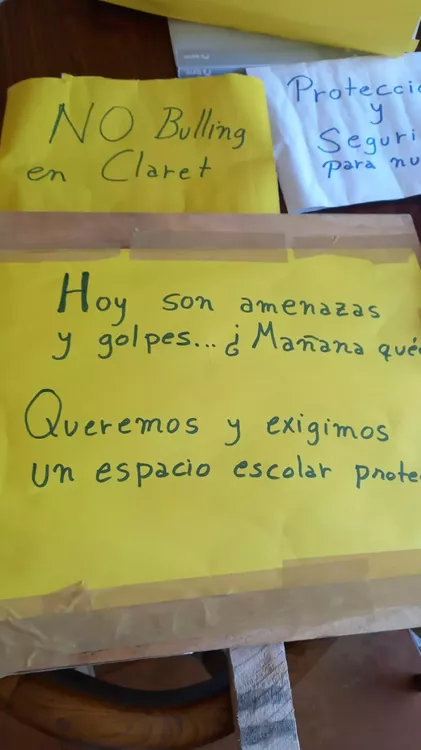 NO Bulling
en Claret
Protecci
y
Seguri
para nu
Hoy son amenazas
y golpes... ¿Mañana qué
Queremos y exigimos
un espacio escolar prote